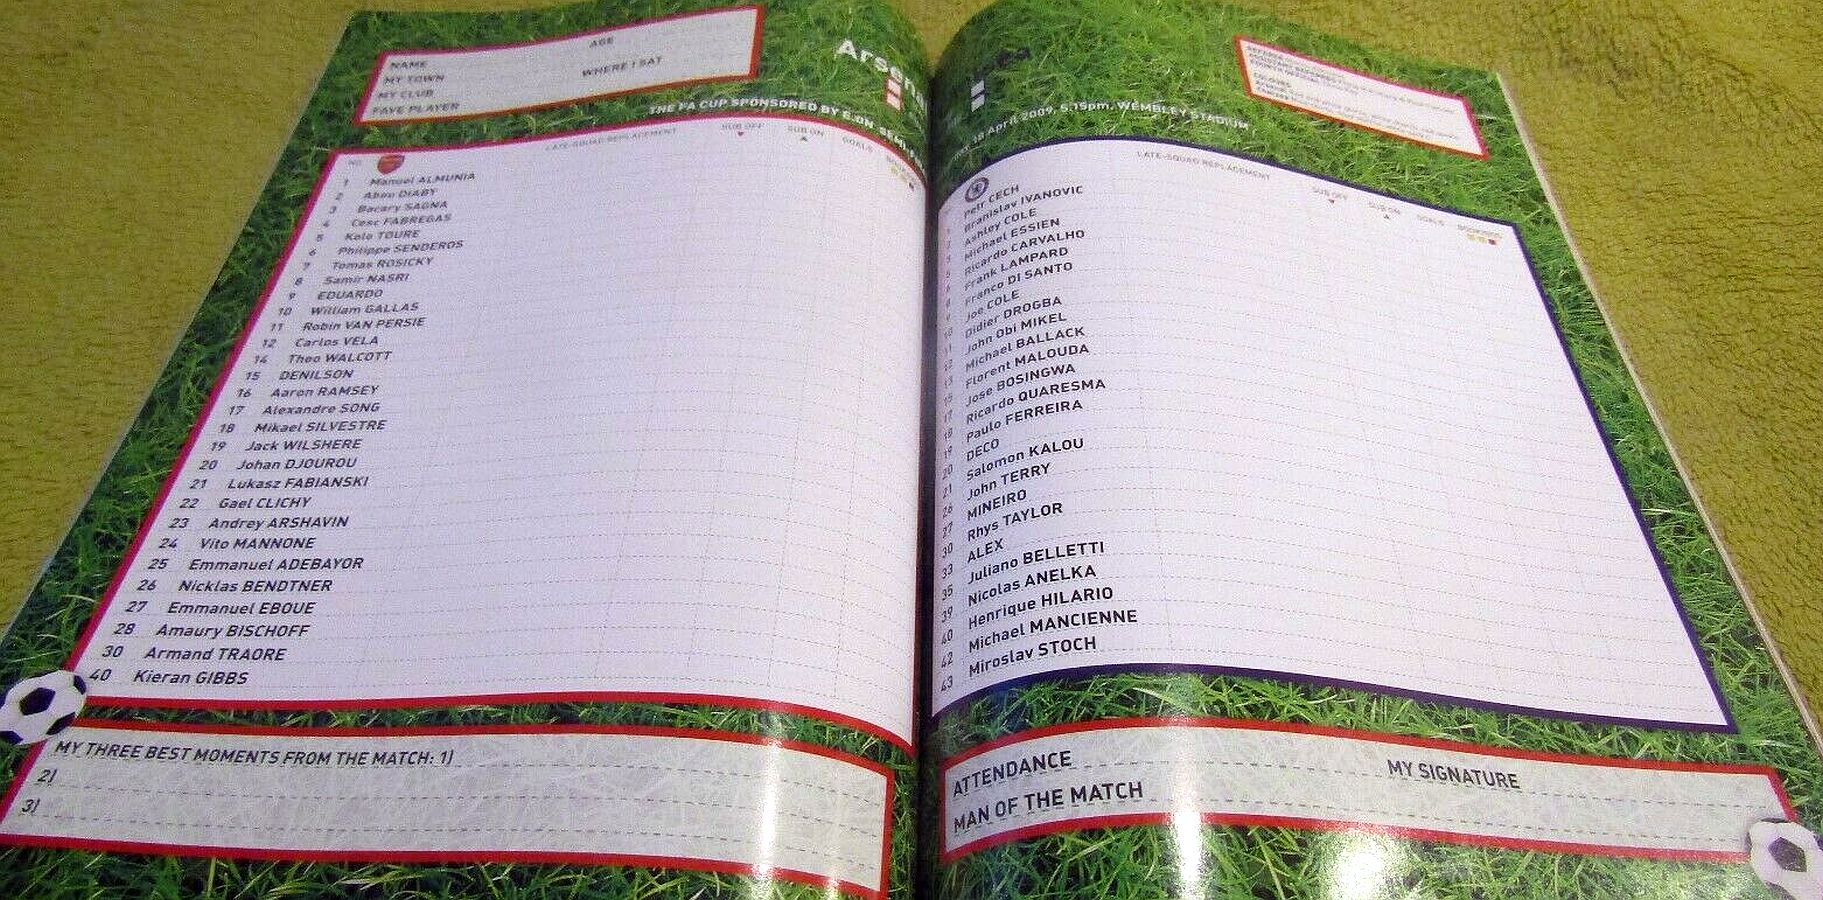 AGE
NAME
MY TOWN
WHERE I SAT
MY CLUB
FAVE PLAYER
Arsenal
THE FA CUP SPONSORED BY E.ON
LATE-SQUAD REPLACEMENT SUB OFF SUB ON GOALS
NO.
1 Manuel ALMUNIA
2 Abou DIABY
3 Bacary SAGNA
4 Cesc FABREGAS
5 Kolo TOURE
6 Philippe SENDEROS
7 Tomas ROSICKY
8 Samir NASRI
9 EDUARDO
10 William GALLAS
11 Robin VAN PERSIE
12 Carlos VELA
14 Theo WALCOTT
15 DENILSON
16 Aaron RAMSEY
17 Alexandre SONG
18 Mikael SILVESTRE
19 Jack WILSHERE
20 Johan DJOUROU
21 Lukasz FABIANSKI
22 Gael CLICHY
23 Andrey ARSHAVIN
24 Vito MANNONE
25 Emmanuel ADEBAYOR
26 Nicklas BENDTNER
27 Emmanuel EBOUE
28 Amaury BISCHOFF
30 Armand TRAORE
40 Kieran GIBBS
MY THREE BEST MOMENTS FROM THE MATCH: 1)
2)
3)
18 April 2009, 5.15pm, WEMBLEY STADIUM
LATE-SQUAD REPLACEMENT SUB OFF SUB ON GOALS BOOKINGS
Petr CECH
Branislav IVANOVIC
Ashley COLE
Michael ESSIEN
Ricardo CARVALHO
Frank LAMPARD
Franco DI SANTO
Joe COLE
Didier DROGBA
John Obi MIKEL
Michael BALLACK
Florent MALOUDA
Jose BOSINGWA
Ricardo QUARESMA
Paulo FERREIRA
DECO
Salomon KALOU
John TERRY
MINEIRO
Rhys TAYLOR
ALEX
Juliano BELLETTI
Nicolas ANELKA
Henrique HILARIO
40 Michael MANCIENNE
42 Miroslav STOCH
43
ATTENDANCE
MY SIGNATURE
MAN OF THE MATCH